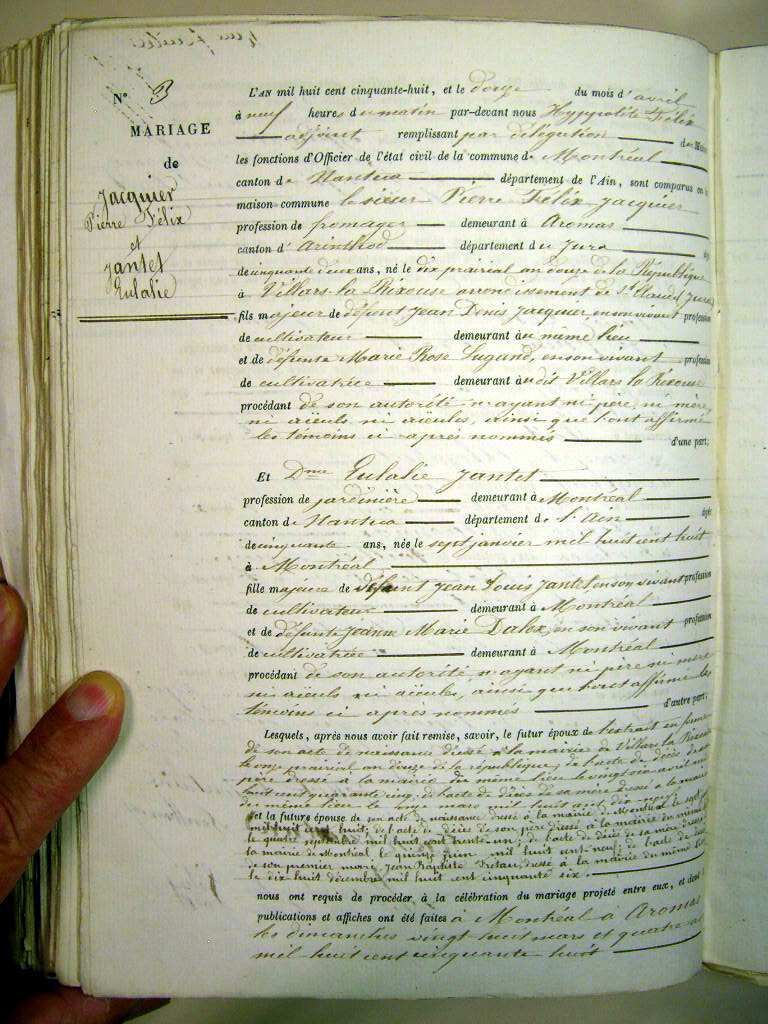 N° 3
MARIAGE
de
Jacquier
Pierre Félix
et
Jantet
Eulalie
L'AN mil huit cent cinquante-huit, et le douze du mois d'avril
à neuf heures du matin par-devant nous Hyppolite Félix
adjoint remplissant par délégation
les fonctions d'Officier de l'état civil de la commune de Montréal
canton de Nantua département de l'Ain, sont comparus en la
maison commune le sieur Pierre Félix Jacquier
profession de fromager demeurant à Aromas
canton d'Arinthod département du Jura
de cinquante deux ans, né le dix prairial an douze de la République
à Villars la Rixouse arrondissement de St Claude (Jura)
fils majeur de défunt Jean Denis Jacquier en son vivant profession
de cultivateur demeurant au même lieu
et de défunte Marie Rose Lugand, en son vivant profession
de cultivatrice demeurant au dit Villars la Rixouse
procédant de son autorité n'ayant ni père, ni mère,
ni aïeuls ni aïeules, ainsi que l'ont affirmé
les témoins ci après nommés d'une part;
Et Dme Eulalie Jantet
profession de jardinière demeurant à Montréal
canton de Nantua département de l'Ain âgée
de cinquante ans, née le sept janvier mil huit cent huit
à Montréal
fille majeure de défunt Jean Louis Jantet en son vivant profession
de cultivateur demeurant à Montréal
et de défunte Jeanne Marie Dalex, en son vivant profession
de cultivatrice demeurant à Montréal
procédant de son autorité n'ayant ni père ni mère
ni aïeuls ni aïeules, ainsi que l'ont affirmé les
témoins ci après nommés d'autre part;
Lesquels, après nous avoir fait remise, savoir, le futur époux de l'extrait en forme
de son acte de naissance dressé à la mairie de Villars la Rixouse
le onze prairial an douze de la république; de l'acte de décès de son
père dressé à la mairie du même lieu le vingt six avril mil
huit cent quarante cinq; de l'acte de décès de sa mère dressé à la mairie
du même lieu le onze mars mil huit cent dix
et la future épouse de son acte de naissance dressé à la mairie de Montréal le sept
mil huit cent huit; de l'acte de décès de son père dressé à la mairie du même
le quatre septembre mil huit cent trente un; de l'acte de décès de sa mère dressé
la mairie de Montréal, le quinze juin mil huit cent neuf; de l'acte de décès
de son premier mari, Jean Baptiste dressé à la mairie du même lieu
le dix huit décembre mil huit cent cinquante six.
nous ont requis de procéder à la célébration du mariage projeté entre eux, et dont
publications et affiches ont été faites à Montréal à Aromas
les dimanches vingt huit mars et quatre
mil huit cent cinquante huit